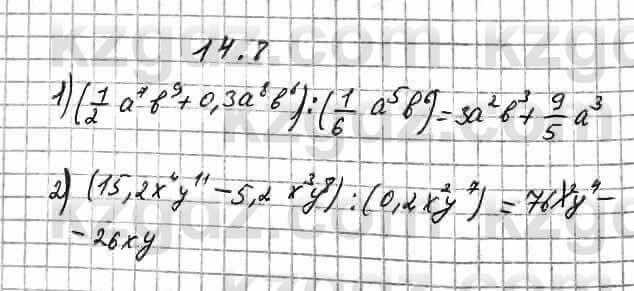 14.8
1) (1/2 a⁷b⁹ + 0,3a⁸b⁶) : (1/6 a⁵b⁶) = 3a²b³ + 9/5 a³
2) (15,2x⁴y¹¹ - 5,2 x³y⁸) : (0,2x²y⁷) = 76x²y⁴ -
- 26xy